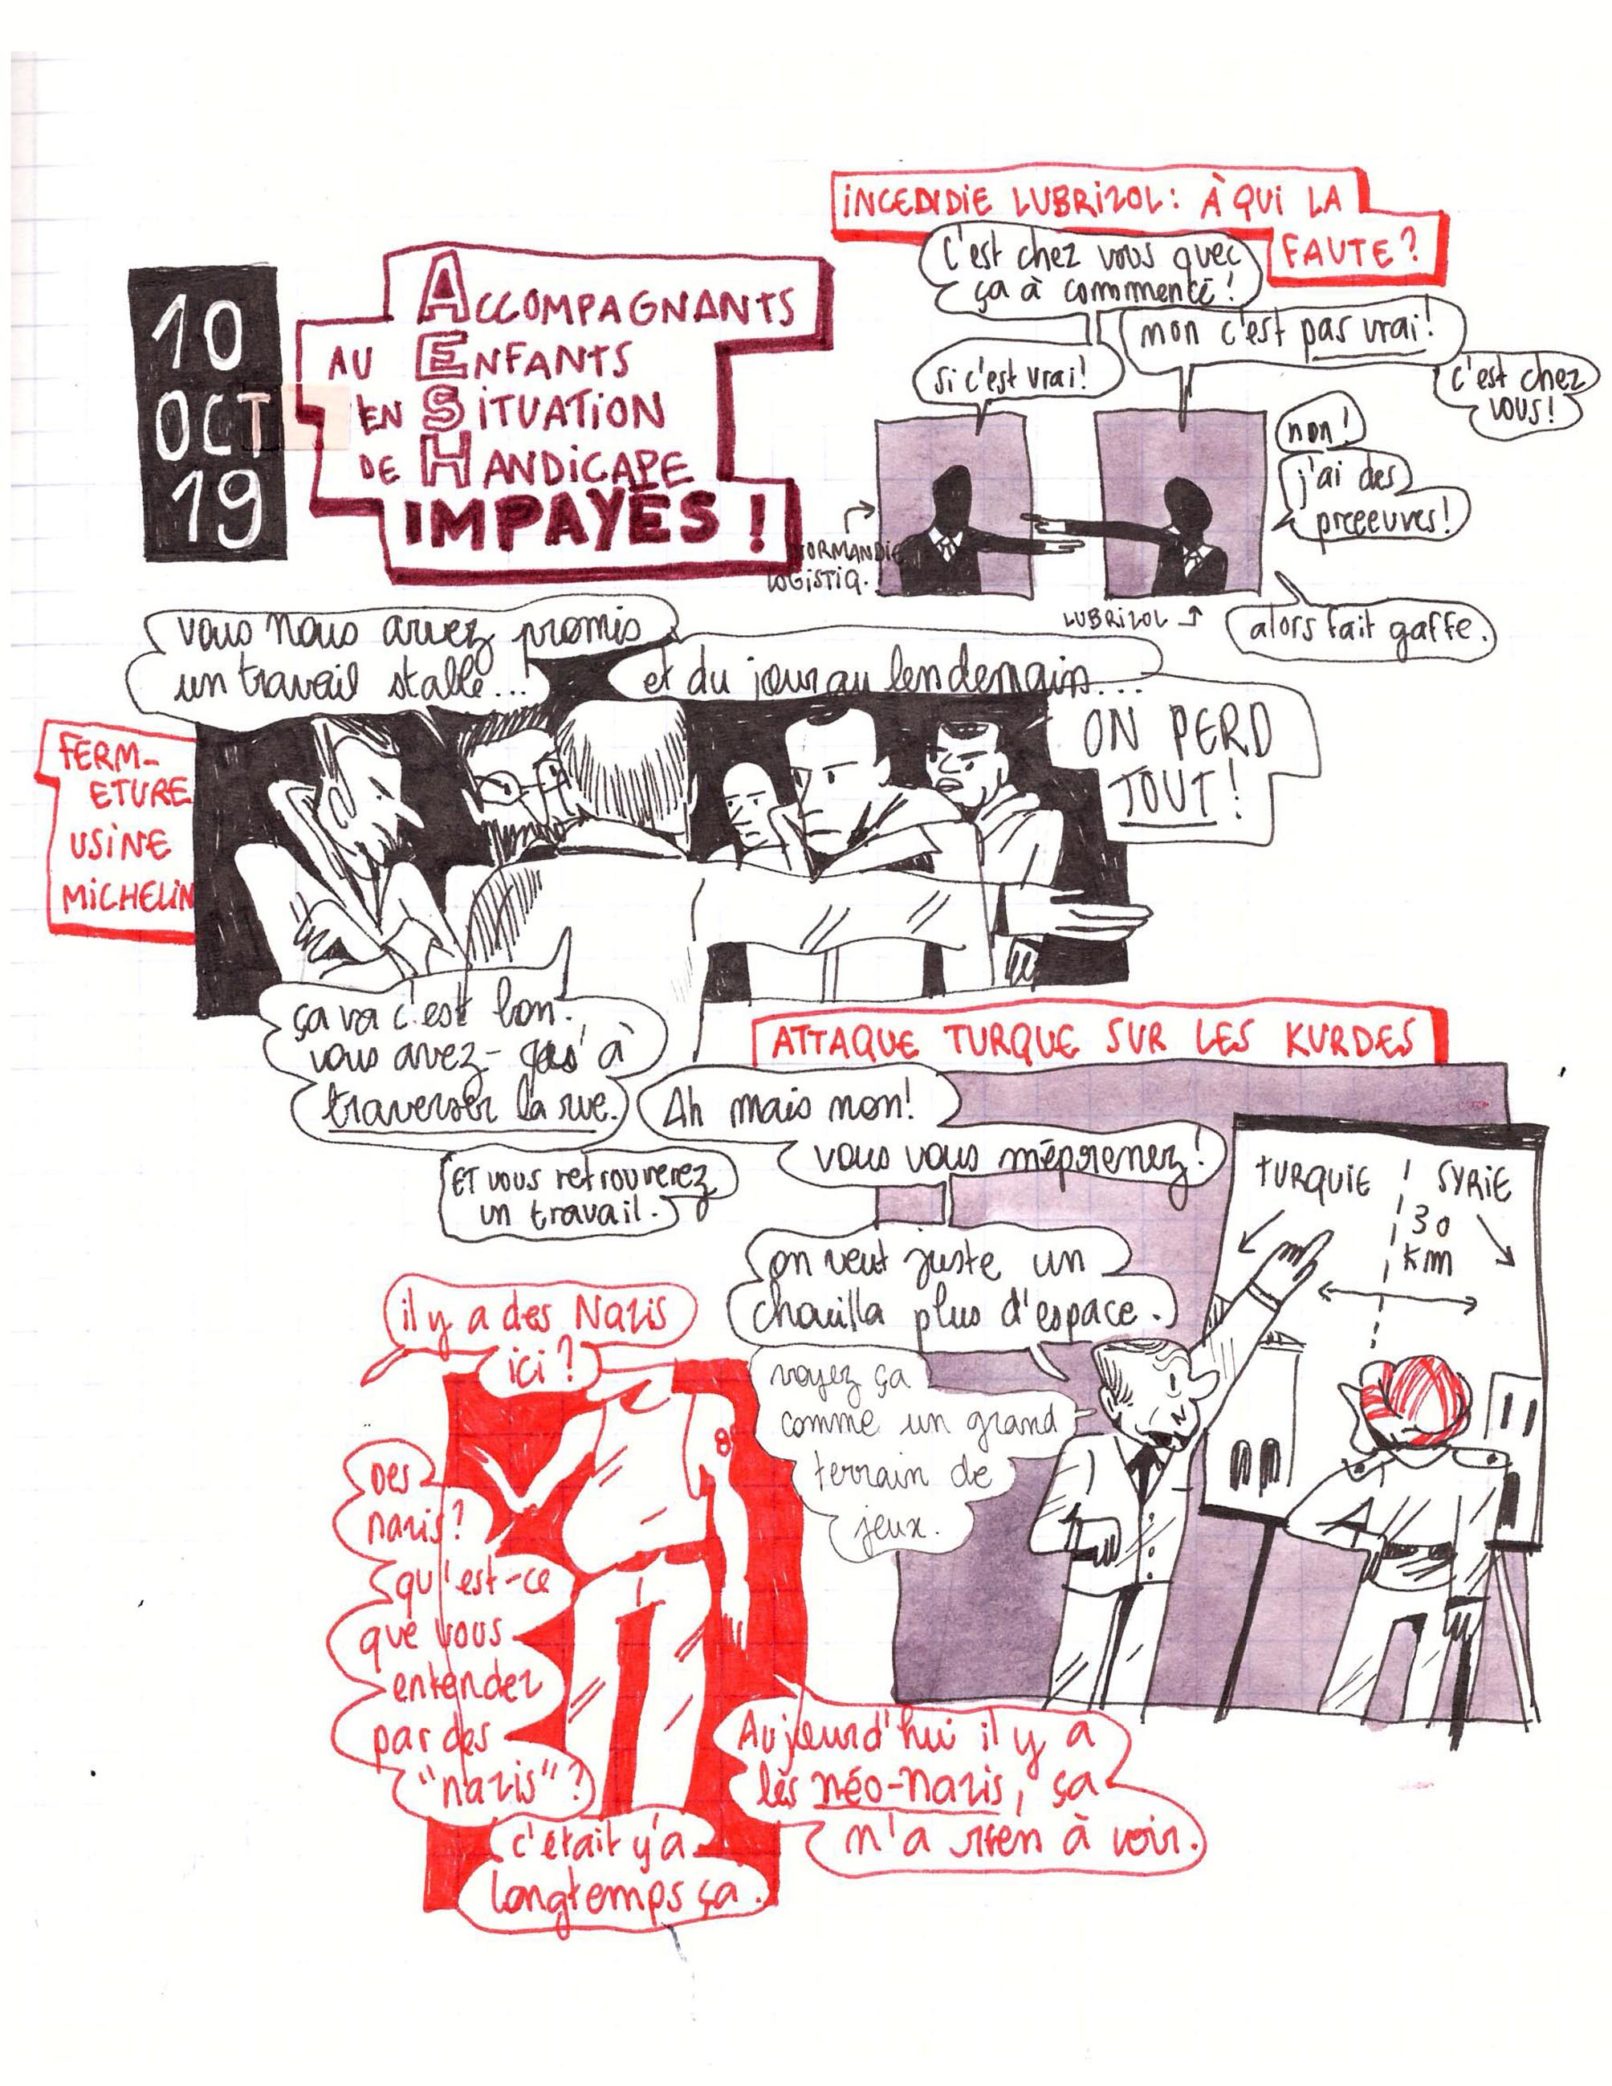 10
OCT
19
ACCOMPAGNANTS
AU ENFANTS
EN SITUATION
DE HANDICAPE
IMPAYÉS !
INCEDIDIE LUBRIZOL : À QUI LA
FAUTE ?
C'est chez vous quec
ça à commencé !
non c'est pas vrai !
si c'est vrai !
c'est chez
vous !
non !
j'ai des
preeeuves !
NORMANDIE
LOGISTIQ.
LUBRIZOL
alors fait gaffe.
vous nous avez promis
un travail stable...!
et du jour au lendemain...
ON PERD
TOUT !
FERM-
ETURE
USINE
MICHELIN
ça va c'est bon !
vous avez-qu'à
traverser la rue.
ET vous retrouverez
un travail.
ATTAQUE TURQUE SUR LES KURDES
Ah mais non !
vous vous méprenez !
on veut juste un
chouilla plus d'espace.
voyez ça
comme un grand
terrain de
jeux.
TURQUIE SYRIE
30
Km
il y a des Nazis
ici ?
Des
nazis ?
qu'est-ce
que vous
entendez
par des
"nazis" ?
c'était y'a
longtemps ça.
Aujourd'hui il y a
les néo-Nazis, ça
n'a rien à voir.